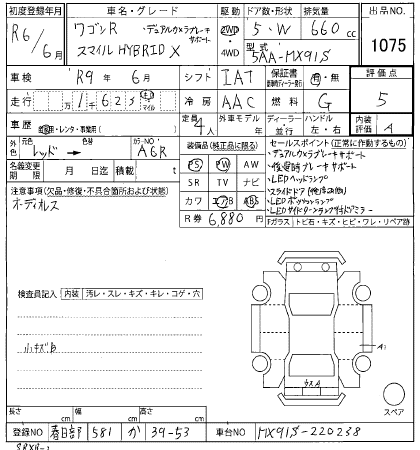 初度登録年月 車名・グレード 駆動 ドア数・形状 排気量 出品NO.
R6/6月 ワゴンR ・デュアルカメラブレーキサポート 2WD 5・W 660cc 1075
スマイル HYBRID X ・4WD 型式 5AA-MX91S
車検 R9年6月 シフト IAT 保証書 有・無 評価点
走行 万1千625 キロ・マイル 冷房 AAC 燃料 G 5
車歴 自家用・レンタ・事業用( ) 定員 4人 外車モデル 年 ディーラー・並行 ハンドル 左・右 内装評価 A
外色 元色 レッド → 色替 カラーNO. A6R
装備品(純正品に限る) セールスポイント(正常に作動するもの)
名義変更期限 月 日迄 積載 t
PS PW AW
・デュアルカメラブレーキサポート
・後退時ブレーキサポート
注意事項(欠品・修復・不具合箇所および状態)
SR TV ナビ
・LEDヘッドランプ
オーディオレス
・スライドドア
カワ エアB ABS
・LEDポジションランプ
R券 6,880円
・LEDサイドターンランプ付ドアミラー
Fガラス トビ石・キズ・ヒビ・ワレ・リペア跡
検査員記入 内装 汚レ・スレ・キズ・キレ・コゲ・穴
小キズ有
A1
ウスA
スペア
長さ cm 幅 cm 高さ cm
登録NO 春日部 581 か 39-53 車台NO MX91S-220238